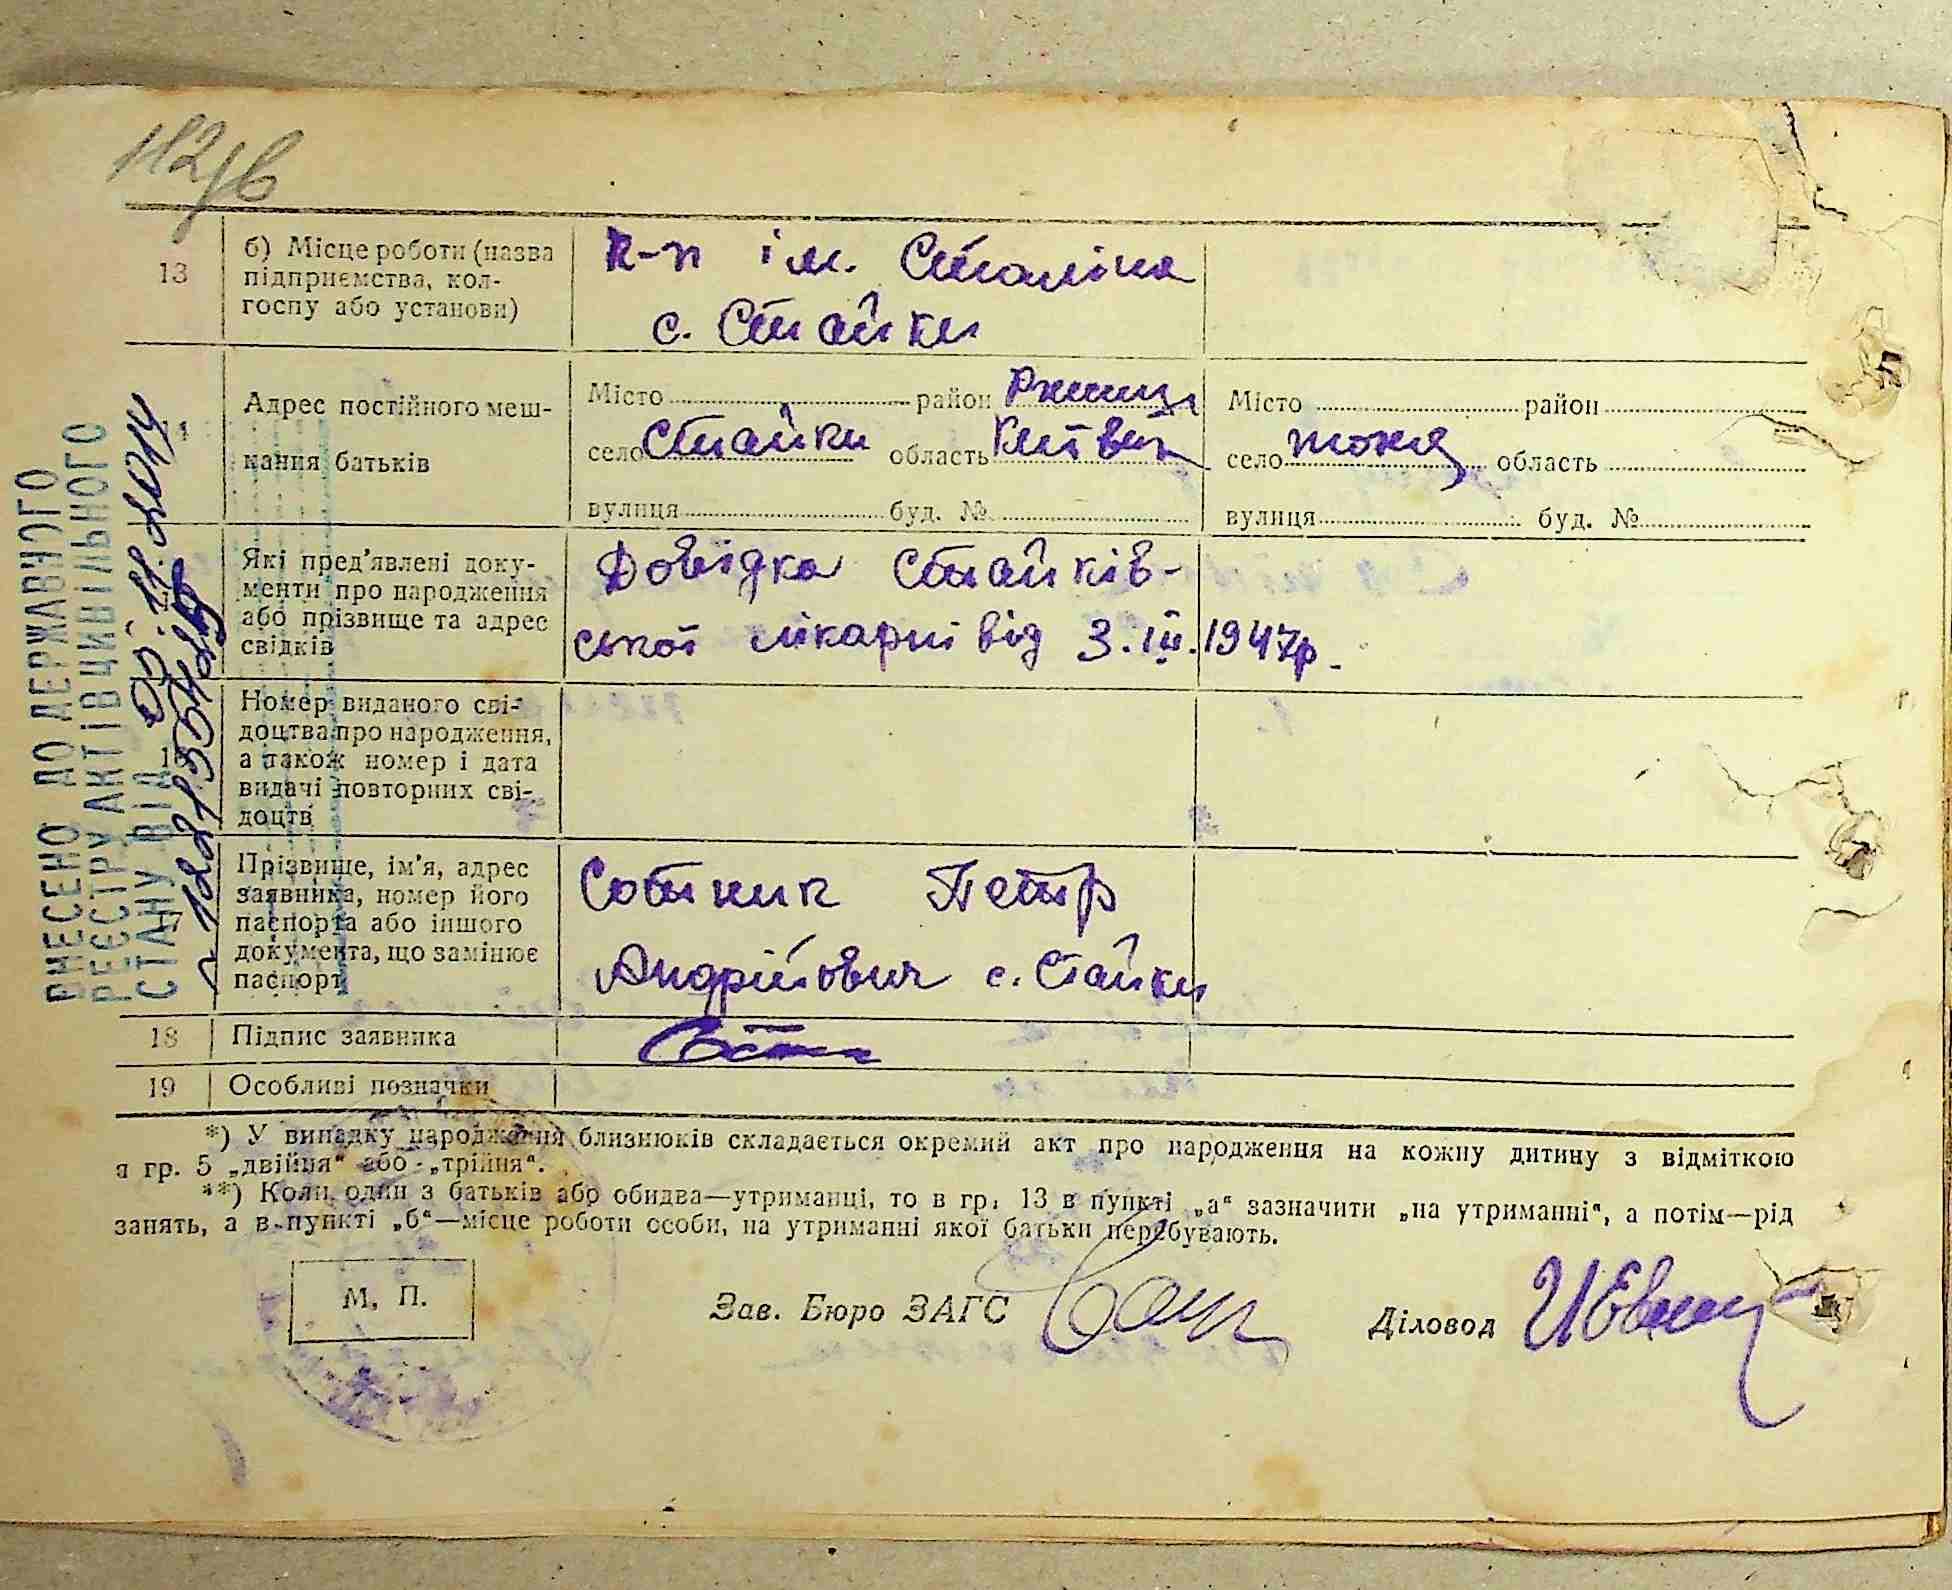 182зв
13
б) Місце роботи (назва
підприємства, кол-
госпу або установи)
к-п ім. Сталіна
с. Стайки
14
Адрес постійного меш-
кання батьків
Місто район Ржищ
село Стайки область Київск
вулиця буд. №
Місто район
село тоже область
вулиця буд. №
Які пред'явлені доку-
менти про народження
або прізвище та адрес
свідків
Довідка Стайків-
ської лікарні від 3.III.1947р.
16
Номер виданого сві-
доцтва про народження,
а також номер і дата
видачі повторних сві-
доцтв
17
Прізвище, ім'я, адрес
заявника, номер його
паспорта або іншого
документа, що замінює
паспорт
Сотник Петр
Андрійович с. Стайки
18 Підпис заявника
19 Особливі позначки
*) У випадку народження близнюків складається окремий акт про народження на кожну дитину з відміткою
в гр. 5 „двійня“ або „трійня“.
**) Коли один з батьків або обидва—утриманці, то в гр. 13 в пункті „а“ зазначити „на утриманні“, а потім—рід
занять, а в пункті „б“—місце роботи особи, на утриманні якої батьки перебувають.
М. П.
Зав. Бюро ЗАГС
Діловод
ВНЕСЕНО ДО ДЕРЖАВНОГО
РЕЄСТРУ АКТІВ ЦИВІЛЬНОГО
СТАНУ ВІД